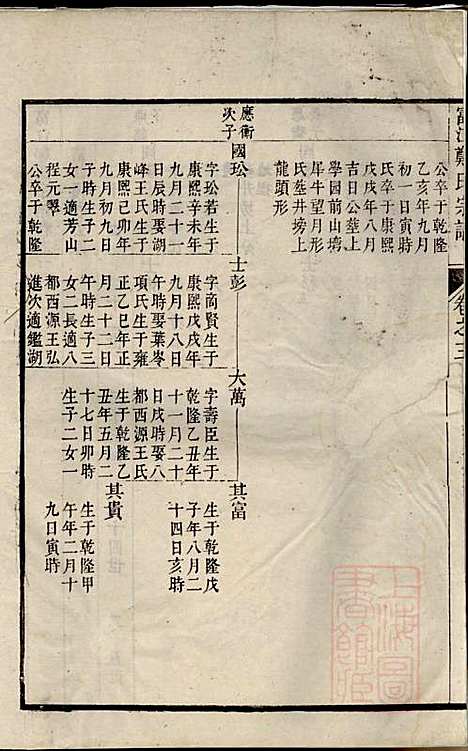 富江鄭氏宗譜
卷之三
公卒于乾隆
乙亥年九月
初一日寅時
氏卒于康熙
戊戌年八月
吉日公塟上
學園前山塆
犀牛望月形
氏塟井塝上
龍頭形
應衡
次子
國玜
字玜若生于
康熙辛未年
九月二十一
日辰時娶湖
峰王氏生于
康熙己卯年
九月初九日
子時生子二
女一適芳山
程元翠
公卒于乾隆
士彭
字商賢生于
康熙戊戌年
九月十八日
午時娶葉岑
項氏生于雍
正乙巳年正
月二十二日
午時生子三
女二長適八
都西源王弘
進次適鑑湖
大萬
字壽臣生于
乾隆乙丑年
十一月二十
日戌時娶八
都西源王氏
生于乾隆乙
丑年五月二
十七日卯時
生子二女一
其富
生于乾隆戊
子年八月二
十四日亥時
其貴
生于乾隆甲
午年二月十
九日寅時
上海圖
書館藏